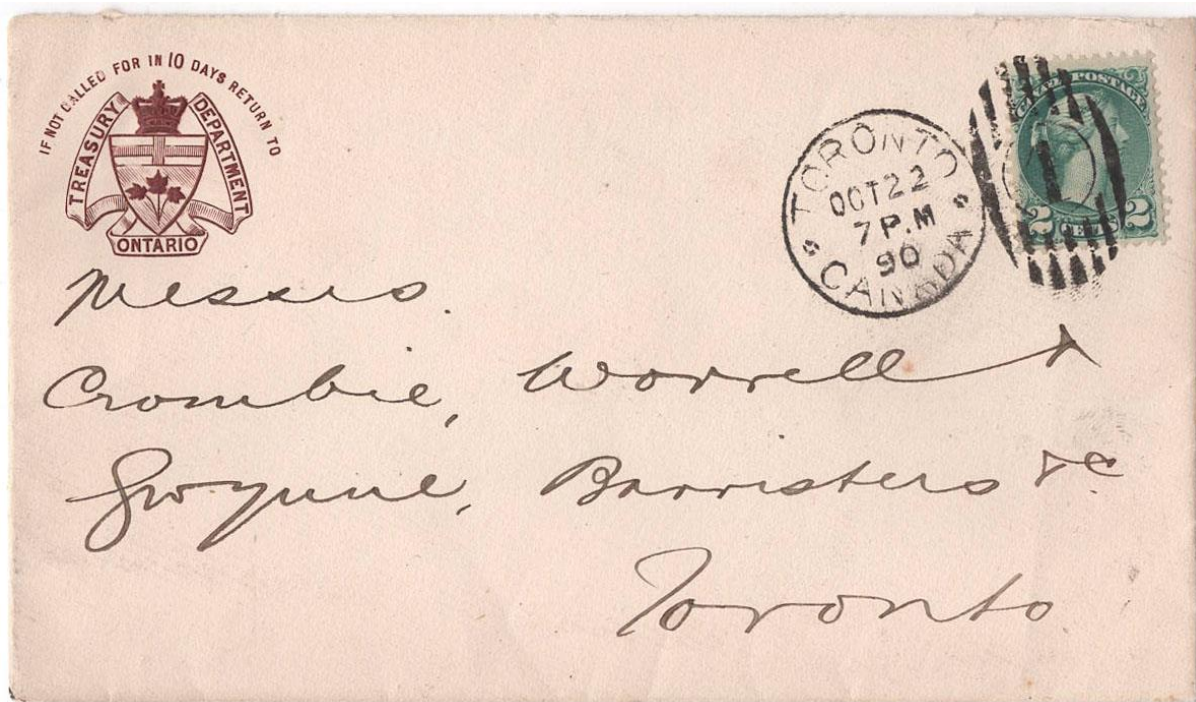 IF NOT CALLED FOR IN 10 DAYS RETURN TO
TREASURY DEPARTMENT
ONTARIO
TORONTO
OCT 22
7 P.M
90
CANADA
CANADA POSTAGE
1
2 CENTS 2
Messrs.
Crombie, Worrell &
Gwynne, Barristers &c
Toronto